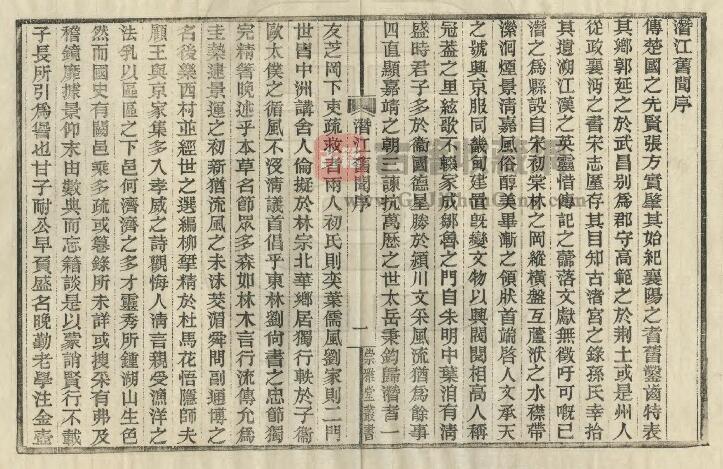 潛江舊聞序
傳楚國之先賢張方實肇其始紀襄陽之耆舊鑿齒特表
其鄉郭延之於武昌別爲郡守高範之於荆土或是州人
從政襄沔之書宋志屢存其目知古渚宮之錄孫氏幸拾
其遺溯江漢之英靈惜傳記之零落文獻無徵吁可嘅已
潛之爲縣設自宋初棠林之岡縱橫盤互蘆洑之水襟帶
瀠洄煙景淸嘉風俗醇美畢漸之領狀首端啓人文承天
之號興京服同畿甸建置旣變文物以興閥閱相高人稱
冠蓋之里絃歌不輟家成鄒魯之門自朱明中葉洎有淸
盛時君子多於衞國德星勝於潁川文采風流猶爲餘事
四直顯嘉靖之朝廷諫抗萬歷之世太岳秉鈞歸潛者一
潛江舊聞序
一
崇雅堂叢書
友芝岡下吏疏救者兩人初氏則奕葉儒風劉家則二門
世冑中洲講舍人倫擬於林宗北華鄉居獨行軼於子衞
歐太僕之循風不沒淸議首倡乎東林劉尙書之忠節獨
完精箸晚述乎本草名節眾多森如林木言行流傳允爲
圭桀建景運之初新猶流風之未沬莫湄舜問副通博之
名後樂西村並經世之選編柳堅精於杜馬花悟隱師夫
顧王與京家集多入孝威之詩觀悔人淸言親受漁洋之
法乳以區區之下邑何濟濟之多才靈秀所鍾湖山生色
然而國史有闕邑乘多疏或纂錄所未詳或搜采有弗及
稽鏡靡據景仰末由數典而忘籍談是以蒙誚賢行不載
子長所引爲咎也甘子耐公早負盛名晚勤老學注金壺